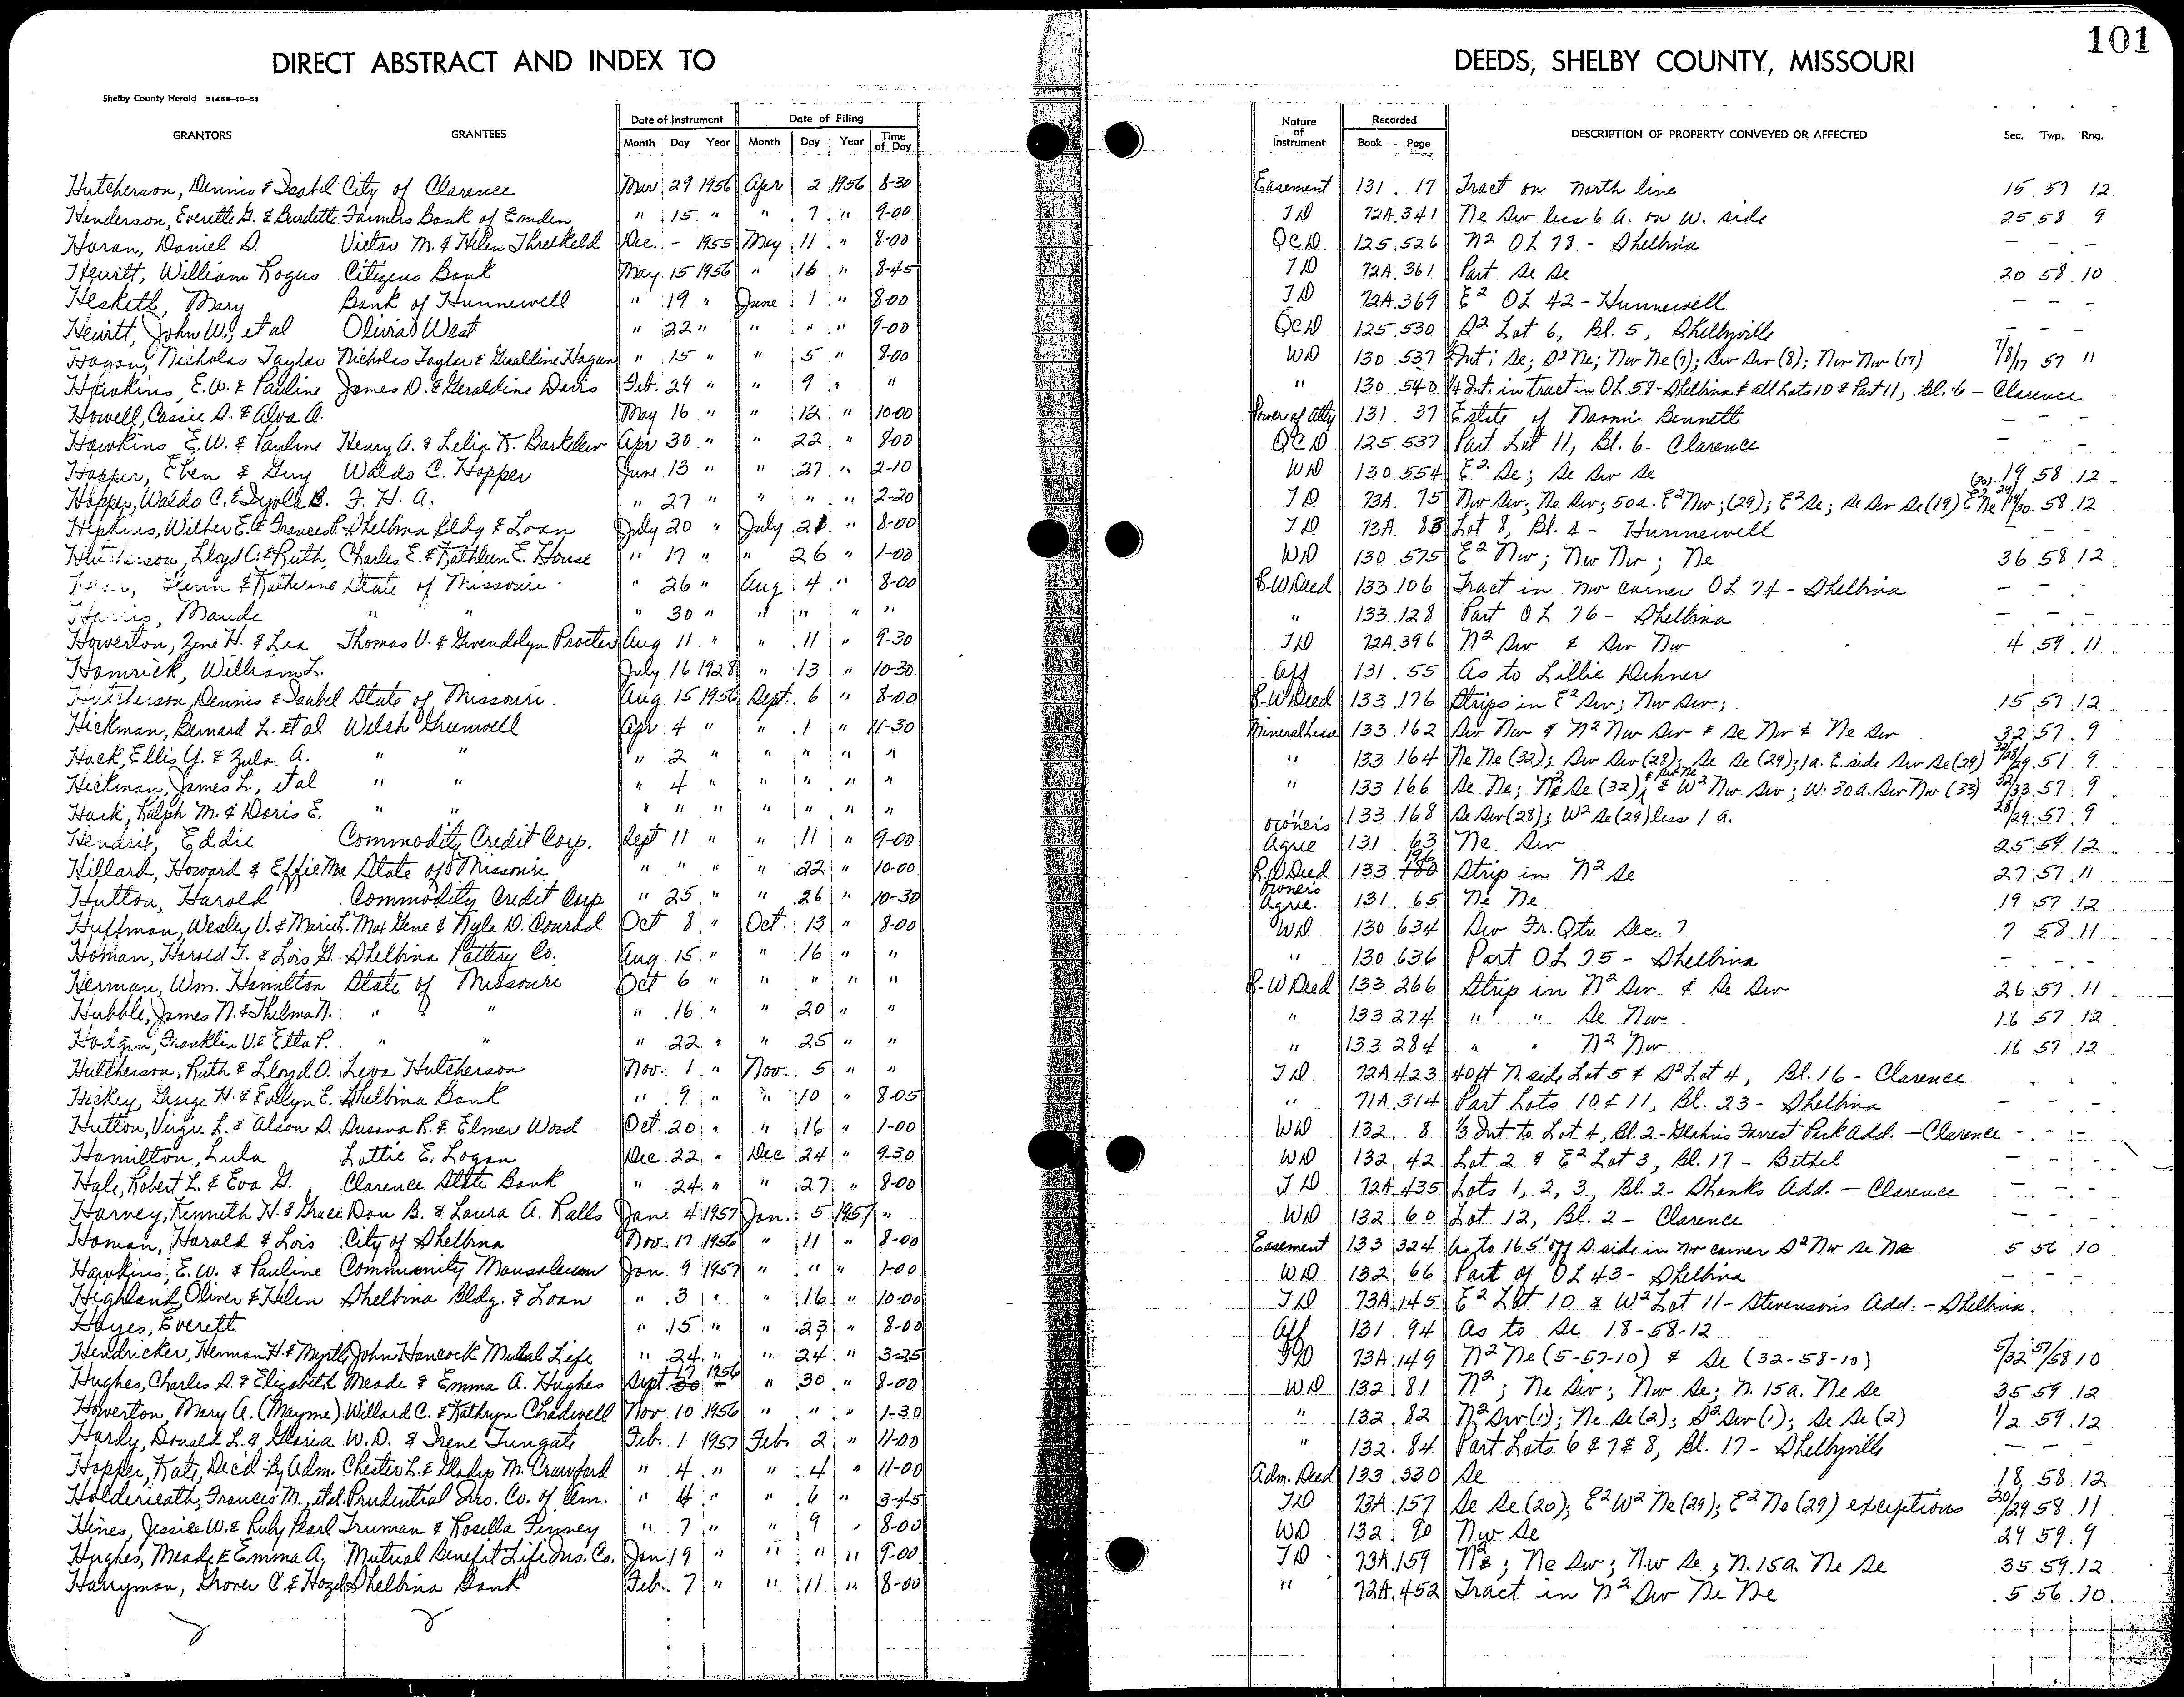 101
DIRECT ABSTRACT AND INDEX TO DEEDS, SHELBY COUNTY, MISSOURI
Shelby County Herald 51458-10-51
GRANTORS GRANTEES Date of Instrument Month Day Year Date of Filing Month Day Year Time of Day Nature of Instrument Recorded Book Page DESCRIPTION OF PROPERTY CONVEYED OR AFFECTED Sec. Twp. Rng.
Hutcherson, Dennis & Isabel City of Clarence Mar 29 1956 Apr 2 1956 8-30 Easement 131 17 Tract on north line 15 57 12
Henderson, Everette G. & Burdette Farmers Bank of Emden " 15 " " 7 " 9-00 TD 72A 341 Ne Sw less 6 A. on W. side 25 58 9
Haran, Daniel S. Victor M. & Helen Threlkeld Dec. - 1955 May 11 " 8-00 QCD 125 526 N2 OL 78 - Shelbina - - -
Hewitt, William Rogus Citizens Bank May 15 1956 " 16 " 8-45 TD 72A 361 Part Se Se 20 58 10
Heskett, Mary Bank of Hunnewell " 19 " June 1 " 8-00 TD 72A 369 E2 OL 42 - Hunnewell - - -
Hewitt, John W., et al Olivia West " 22 " " " " 9-00 QCD 125 530 S2 Lot 6, Bl. 5, Shelbyville - - -
Hagan, Nicholas Taylor Nicholas Taylor & Geraldine Hagan " 15 " " 5 " 8-00 WD 130 537 Int: Se; S2 Ne; Nw Ne (7); Sw Sw (8); Nw Nw (17) 7/8/17 57 11
Hawkins, E.W. & Pauline James D. & Geraldine Davis Feb. 29 " " 9 " " " 130 540 1/4 Int. in tract in OL 58 - Shelbina & all Lots 10 & Part 11, Bl. 6 - Clarence
Howell, Cassie S. & Alva A. May 16 " " 12 " 10-00 Power of Atty 131 37 Estate of Naomi Bennett - - -
Hawkins E.W. & Pauline Henry A. & Lelia K. Barkelew Apr 30 " " 22 " 8-00 QCD 125 537 Part Lot 11, Bl. 6 - Clarence - - -
Hopper, Eben & Guy Waldo C. Hopper June 13 " " 27 " 2-10 WD 130 554 E2 Se; Se Sw Se 19 58 12
Hopper, Waldo C. & B. F. H. A. " 27 " " " " 2-20 TD 73A 75 Nw Sw; Ne Sw; 50a. E2 Nw; (29); E2 Se; Se Sw Se (19) E2 Ne (30) 29/19/30 58 12
Hipkins, Wilber E. & Frances Shelbina Bldg & Loan July 20 " July 21 " 8-00 TD 73A 83 Lot 8, Bl. 4 - Hunnewell - - -
Hutcherson, Lloyd O. & Ruth Charles E. & Kathleen E. House " 17 " " 26 " 1-00 WD 130 575 E2 Nw; Nw Nw; Ne 36 58 12
Glenn & Katherine State of Missouri " 26 " Aug 4 " 8-00 R-W Deed 133 106 Tract in nw corner OL 74 - Shelbina - - -
Harris, Maude " " 30 " " " " " " 133 128 Part OL 76 - Shelbina - - -
Howerton, Zene H. & Lea Thomas V. & Gwendolyn Procter Aug 11 " " 11 " 9-30 TD 72A 396 N2 Sw & Sw Nw 4 59 11
Hamrick, William L. July 16 1928 " 13 " 10-30 Aff 131 55 As to Lillie Dehner
Hutcherson, Dennis & Isabel State of Missouri Aug 15 1956 Sept. 6 " 8-00 R-W Deed 133 176 Strips in E2 Sw; Nw Sw; 15 57 12
Hickman, Bernard L. et al Welch Greenwell Apr 4 " " 1 " 11-30 Mineral Lease 133 162 Sw Nw & N2 Nw Sw & Se Nw & Ne Sw 32 57 9
Hack, Ellis Y. & Zula A. " " " 2 " " " " " " 133 164 Ne Ne (32); Sw Sw (28); Se Se (29); 1a. E. side Sw Se (29) 32/28/29 57 9
Hickman, James L., et al " " " 4 " " " " " " 133 166 Se Ne; N2 Se (32); & Sw Ne & W2 Nw Sw; W. 30 A. Sw Nw (33) 32/33 57 9
Hack, Ralph M. & Doris E. " " " " " " " " " 133 168 Se Sw (28); W2 Se (29) less 1 A. 28/29 57 9
Hendrix, Eddie Commodity Credit Corp. Sept 11 " " 11 " 9-00 Owner's Agree 131 63 Ne Sw 25 59 12
Hillard, Howard & Effie Mae State of Missouri " " " " 22 " 10-00 R.W Deed 133 196 Strip in N2 Se 27 57 11
Hutton, Harold Commodity Credit Corp " 25 " " 26 " 10-30 Owner's Agree. 131 65 Ne Ne 19 57 12
Huffman, Wesley V. & Marie L. Max Gene & Nyla D. Conrad Oct 8 " Oct. 13 " 8-00 WD 130 634 Sw Fr. Qtr. Sec. 7 7 58 11
Homan, Harold T. & Lois G. Shelbina Pottery Co. Aug. 15 " " 16 " " " 130 636 Part OL 25 - Shelbina - - -
Herman, Wm. Hamilton State of Missouri Oct 6 " " " " " R-W Deed 133 266 Strip in N2 Sw & Se Sw 26 57 11
Hubble, James N. & Thelma N. " " " 16 " " 20 " " " 133 274 " " Se Nw 16 57 12
Hodgin, Franklin V. & Etta P. " " " 22 " " 25 " " " 133 284 " " N2 Nw 16 57 12
Hutcherson, Ruth & Lloyd O. Leva Hutcherson Nov. 1 " Nov. 5 " " TD 72A 423 40ft N. side Lot 5 & S2 Lot 4, Bl. 16 - Clarence
Hickey, George H. & Evelyn E. Shelbina Bank " 9 " " 10 " 8-05 " 71A 314 Part Lots 10 & 11, Bl. 23 - Shelbina - - -
Hutton, Virgie L. & Alson S. Susana R. & Elmer Wood Oct. 20 " " 16 " 1-00 WD 132 8 1/3 Int to Lot 4, Bl. 2 - Forrest Park Add. - Clarence - - -
Hamilton, Lula Lottie E. Logan Dec 22 " Dec 24 " 9-30 WD 132 42 Lot 2 & E2 Lot 3, Bl. 17 - Bethel - - -
Hale, Robert L. & Eva G. Clarence State Bank " 24 " " 27 " 8-00 TD 72A 435 Lots 1, 2, 3, Bl. 2 - Shanks Add. - Clarence - - -
Harvey, Kenneth H. & Grace Don B. & Laura A. Ralls Jan. 4 1957 Jan. 5 1957 " WD 132 60 Lot 12, Bl. 2 - Clarence - - -
Homan, Harold & Lois City of Shelbina Nov. 17 1956 " 11 " 8-00 Easement 133 324 As to 165' off S. side in nw corner S2 Nw Se Ne 5 56 10
Hawkins, E. W. & Pauline Community Mausoleum Jan 9 1957 " " " 1-00 WD 132 66 Part of OL 43 - Shelbina - - -
Highland, Oliver & Helen Shelbina Bldg. & Loan " 3 " " 16 " 10-00 TD 73A 145 E2 Lot 10 & W2 Lot 11 - Stevenson's Add. - Shelbina.
Hayes, Everett " 15 " " 23 " 8-00 Aff 131 94 As to Se 18-58-12
Hendricker, Herman H. & Myrtle John Hancock Mutual Life " 24 " " 24 " 3-25 TD 73A 149 N2 Ne (5-57-10) & Se (32-58-10) 5/32 57/58 10
Hughes, Charles S. & Elizabeth Meade & Emma A. Hughes Sept 17 1956 " 30 " 8-00 WD 132 81 N2; Ne Sw; Nw Se; N. 15a. Ne Se 35 59 12
Howerton, Mary A. (Mayme) Willard C. & Kathryn Chadwell Nov. 10 1956 " " " 1-30 " 132 82 N2 Sw (1); Ne Se (2); S2 Sw (1); Se Se (2) 1/2 59 12
Hardy, Donald L. & Gloria W. D. & Irene Tungate Feb. 1 1957 Feb. 2 " 11-00 " 132 84 Part Lots 6 & 7 & 8, Bl. 17 - Shelbyville - - -
Hopper, Kate, Dec'd - By Adm. Chester L. & Gladys M. Crawford " 4 " " 4 " 11-00 Adm. Deed 133 330 Se 18 58 12
Holderieath, Frances M., et al Prudential Ins. Co. of Am. " 4 " " 6 " 3-45 TD 73A 157 Se Se (20); E2 W2 Ne (29); E2 Ne (29) exceptions 20/29 58 11
Hines, Jessie W. & Ruby Pearl Truman & Rosella Pinney " 7 " " 9 " 8-00 WD 132 90 Nw Se 29 59 9
Hughes, Meade & Emma A. Mutual Benefit Life Ins. Co. Jan 19 " " " " 9-00 TD 73A 159 N2; Ne Sw; Nw Se; N. 15a. Ne Se 35 59 12
Harryman, Grover C. & Hazel Shelbina Bank Feb. 7 " " 11 " 8-00 " 72A 452 Tract in N2 Sw Ne Ne 5 56 10